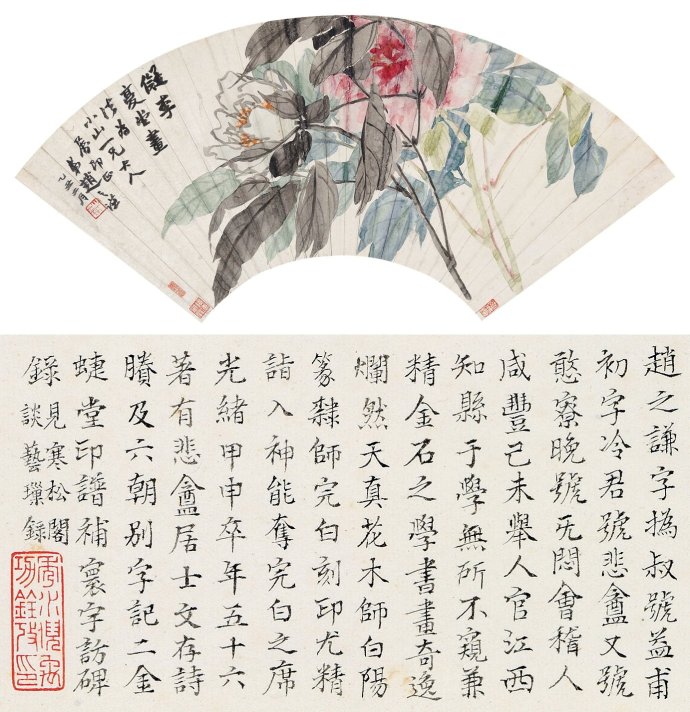 儗李
復堂畫
法為
小山一兄大人
屬印正
弟趙之謙
乙丑三月
趙之謙字撝叔號益甫
初字冷君號悲盦又號
憨寮晚號无悶會稽人
咸豐己未舉人官江西
知縣于學無所不窺兼
精金石之學書畫奇逸
爛然天真花木師白陽
篆隸師完白刻印尤精
詣入神能奪完白之席
光緒甲申卒年五十六
著有悲盦居士文存詩
賸及六朝別字記二金
蜨堂印譜補寰宇訪碑
錄
見寒松閣
談藝璅錄